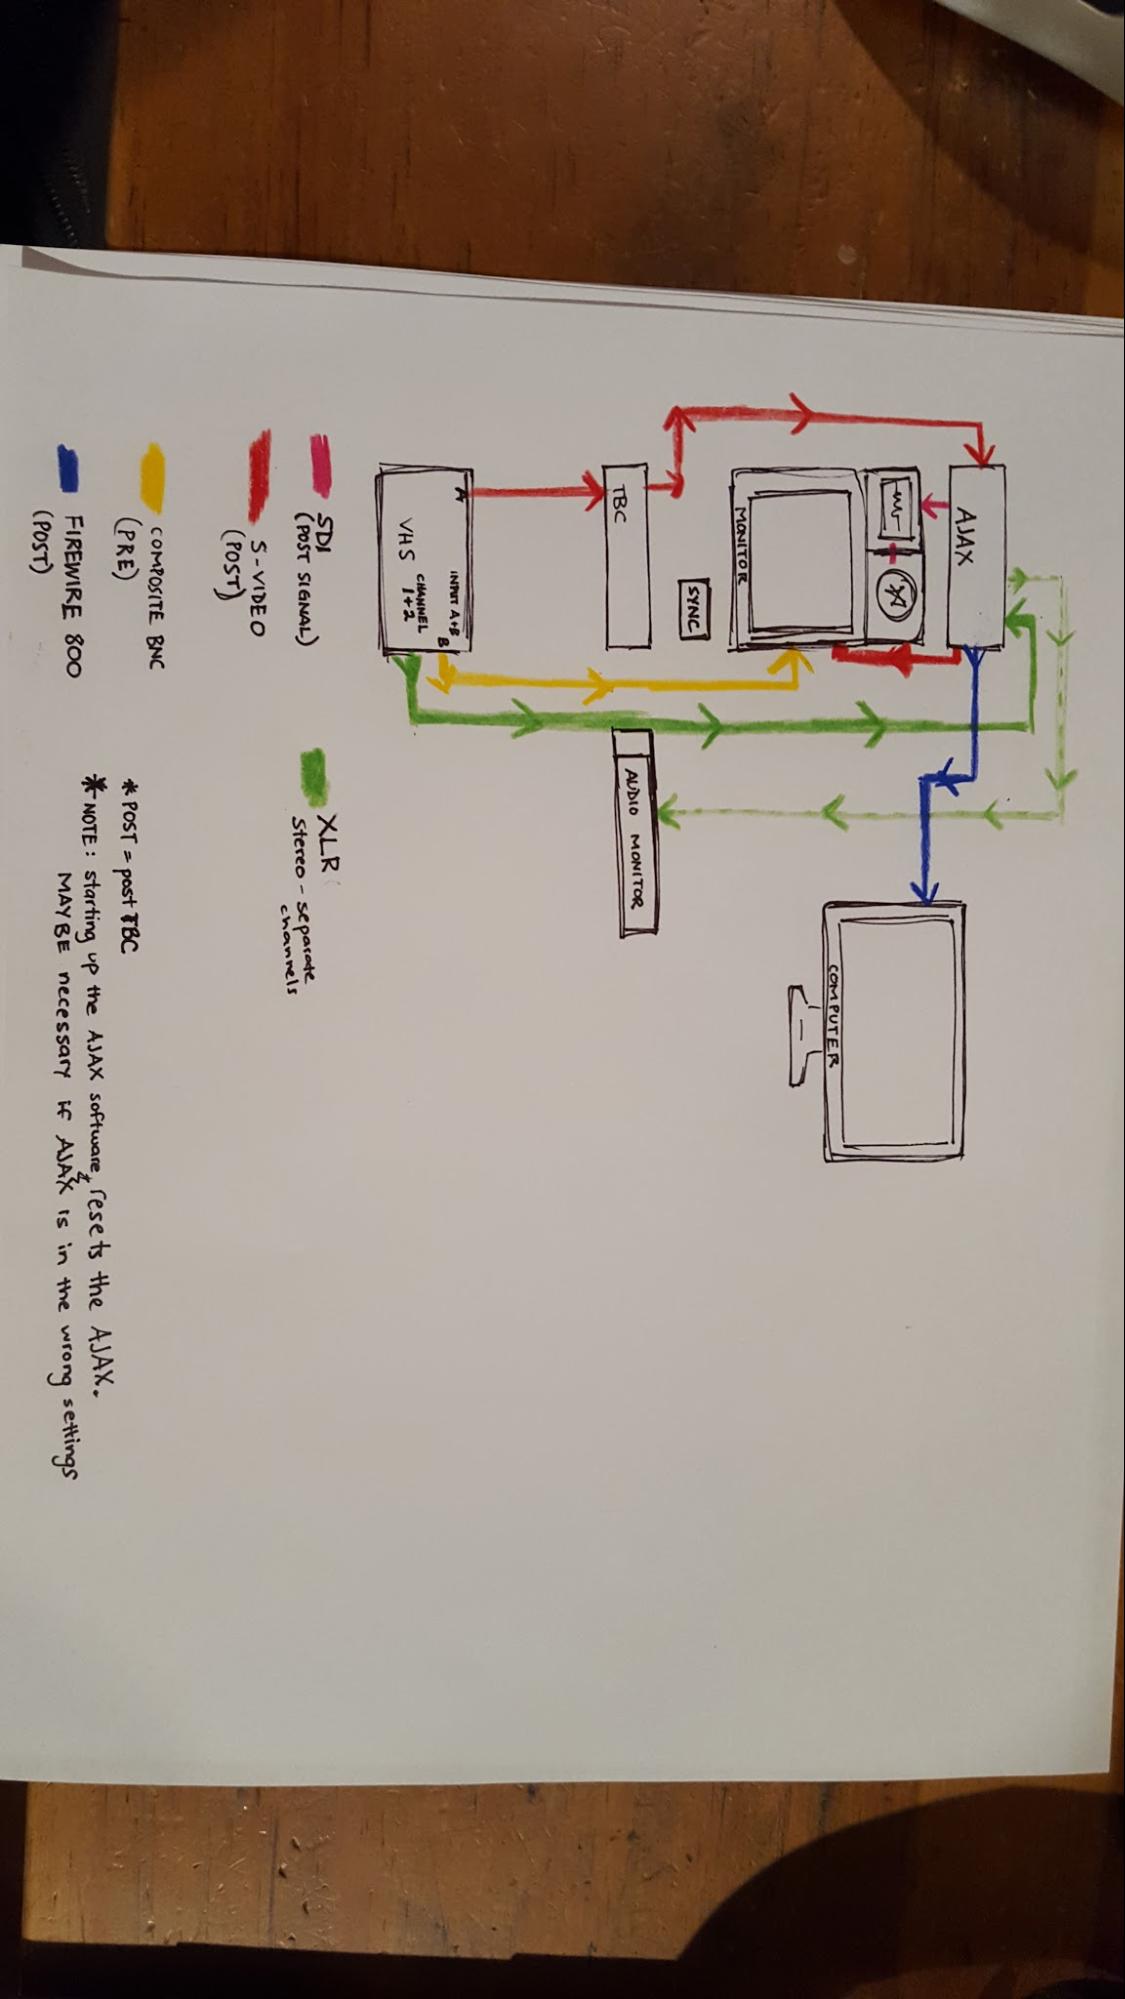 AJAX
MONITOR
SYNC
TBC
A
INPUT A+B
B
CHANNEL
1+2
VHS
COMPUTER
AUDIO MONITOR
SDI
(POST SIGNAL)
S-VIDEO
(POST)
COMPOSITE BNC
(PRE)
FIREWIRE 800
(POST)
XLR
stereo - separate
channels
* POST = post TBC
* NOTE: starting up the AJAX software, resets the AJAX.
MAYBE necessary if AJAX is in the wrong settings